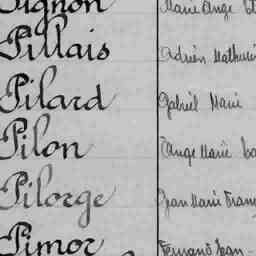 Pignon Marie Ange
Pillais Adrien Mathurin
Pilard Gabriel Marie
Pilon Ange Marie
Pilorge Jean Marie Franç
Pimor Fernand Jean